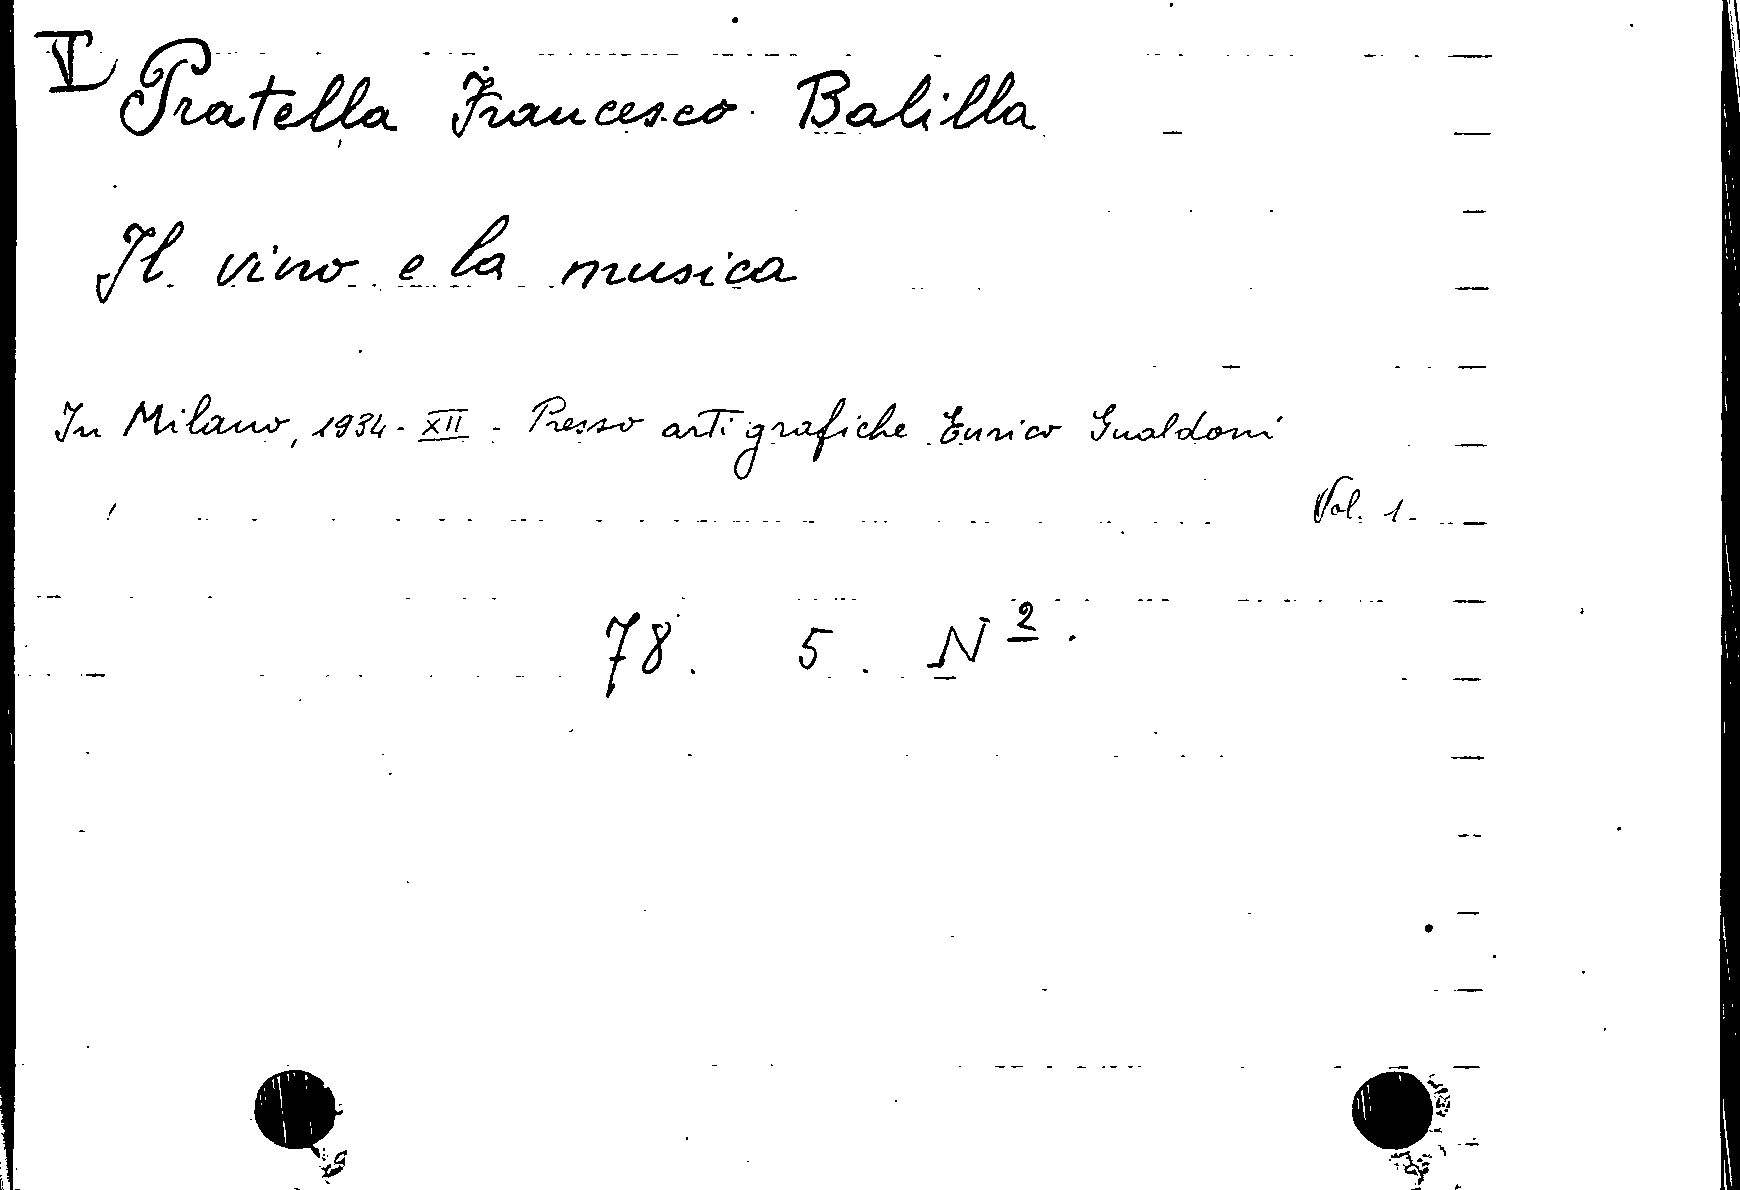 Pratella Francesco Balilla
Il vino e la musica
In Milano, 1934-XII - Presso arti grafiche Enrico Gualdoni
Vol. 1-
78. 5. N 2.